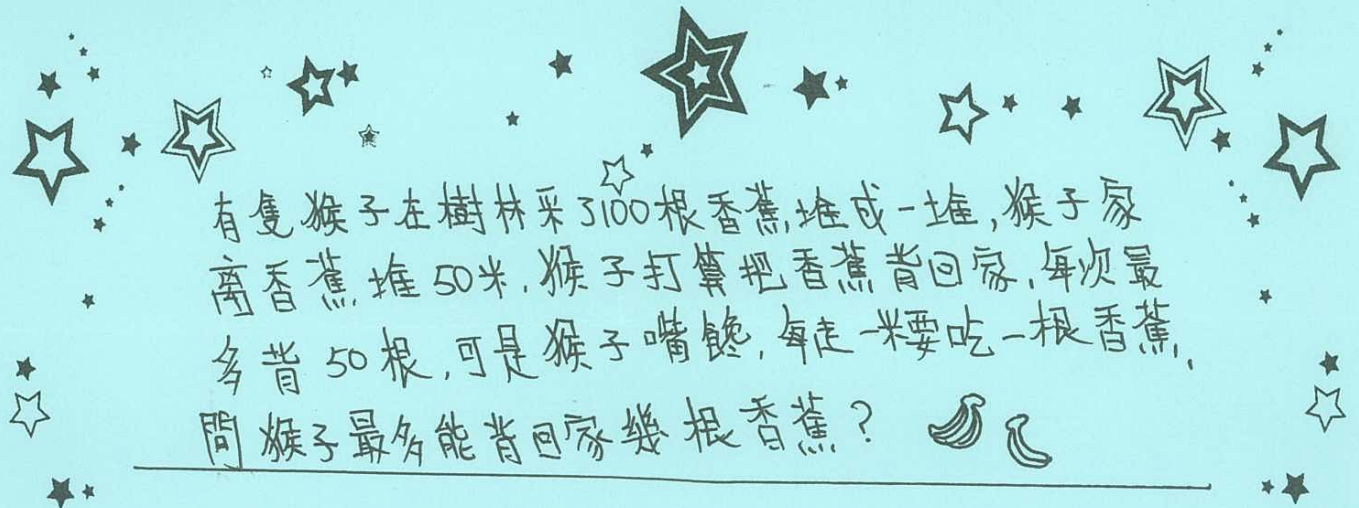 有隻猴子在樹林采了100根香蕉,堆成一堆,猴子家
离香蕉堆50米,猴子打算把香蕉背回家,每次最
多背50根,可是猴子嘴馋,每走一米要吃一根香蕉,
問猴子最多能背回家幾根香蕉?